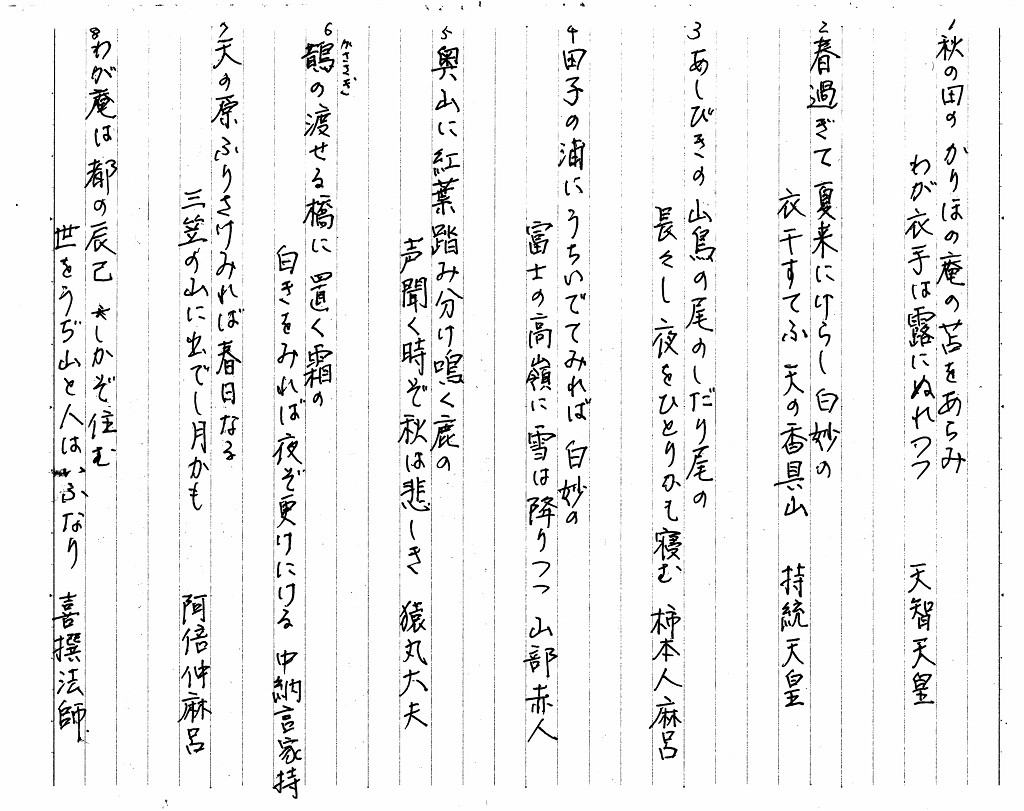 1秋の田のかりほの庵の苫をあらみ
わが衣手は露にぬれつつ 天智天皇
2春過ぎて夏来にけらし白妙の
衣干すてふ天の香具山 持統天皇
3あしびきの山鳥の尾のしだり尾の
長々し夜をひとりかも寝む 柿本人麻呂
4田子の浦にうちいでてみれば白妙の
富士の高嶺に雪は降りつつ 山部赤人
5奥山に紅葉踏み分け鳴く鹿の
声聞く時ぞ秋は悲しき 猿丸大夫
かささぎ
6鵲の渡せる橋に置く霜の
白きをみれば夜ぞ更けにける 中納言家持
7天の原ふりさけみれば春日なる
三笠の山に出でし月かも 阿倍仲麻呂
8わが庵は都の辰己しかぞ住む
世をうぢ山と人はいふなり 喜撰法師